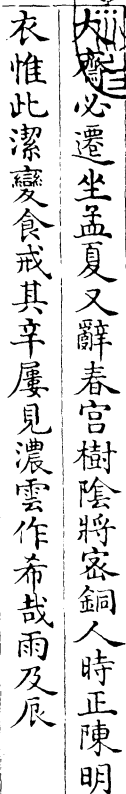 大齋必遷坐孟夏又辭春宫樹陰將宻銅人時正陳明
衣惟此潔變食戒其辛屢見濃雲作希哉雨及辰